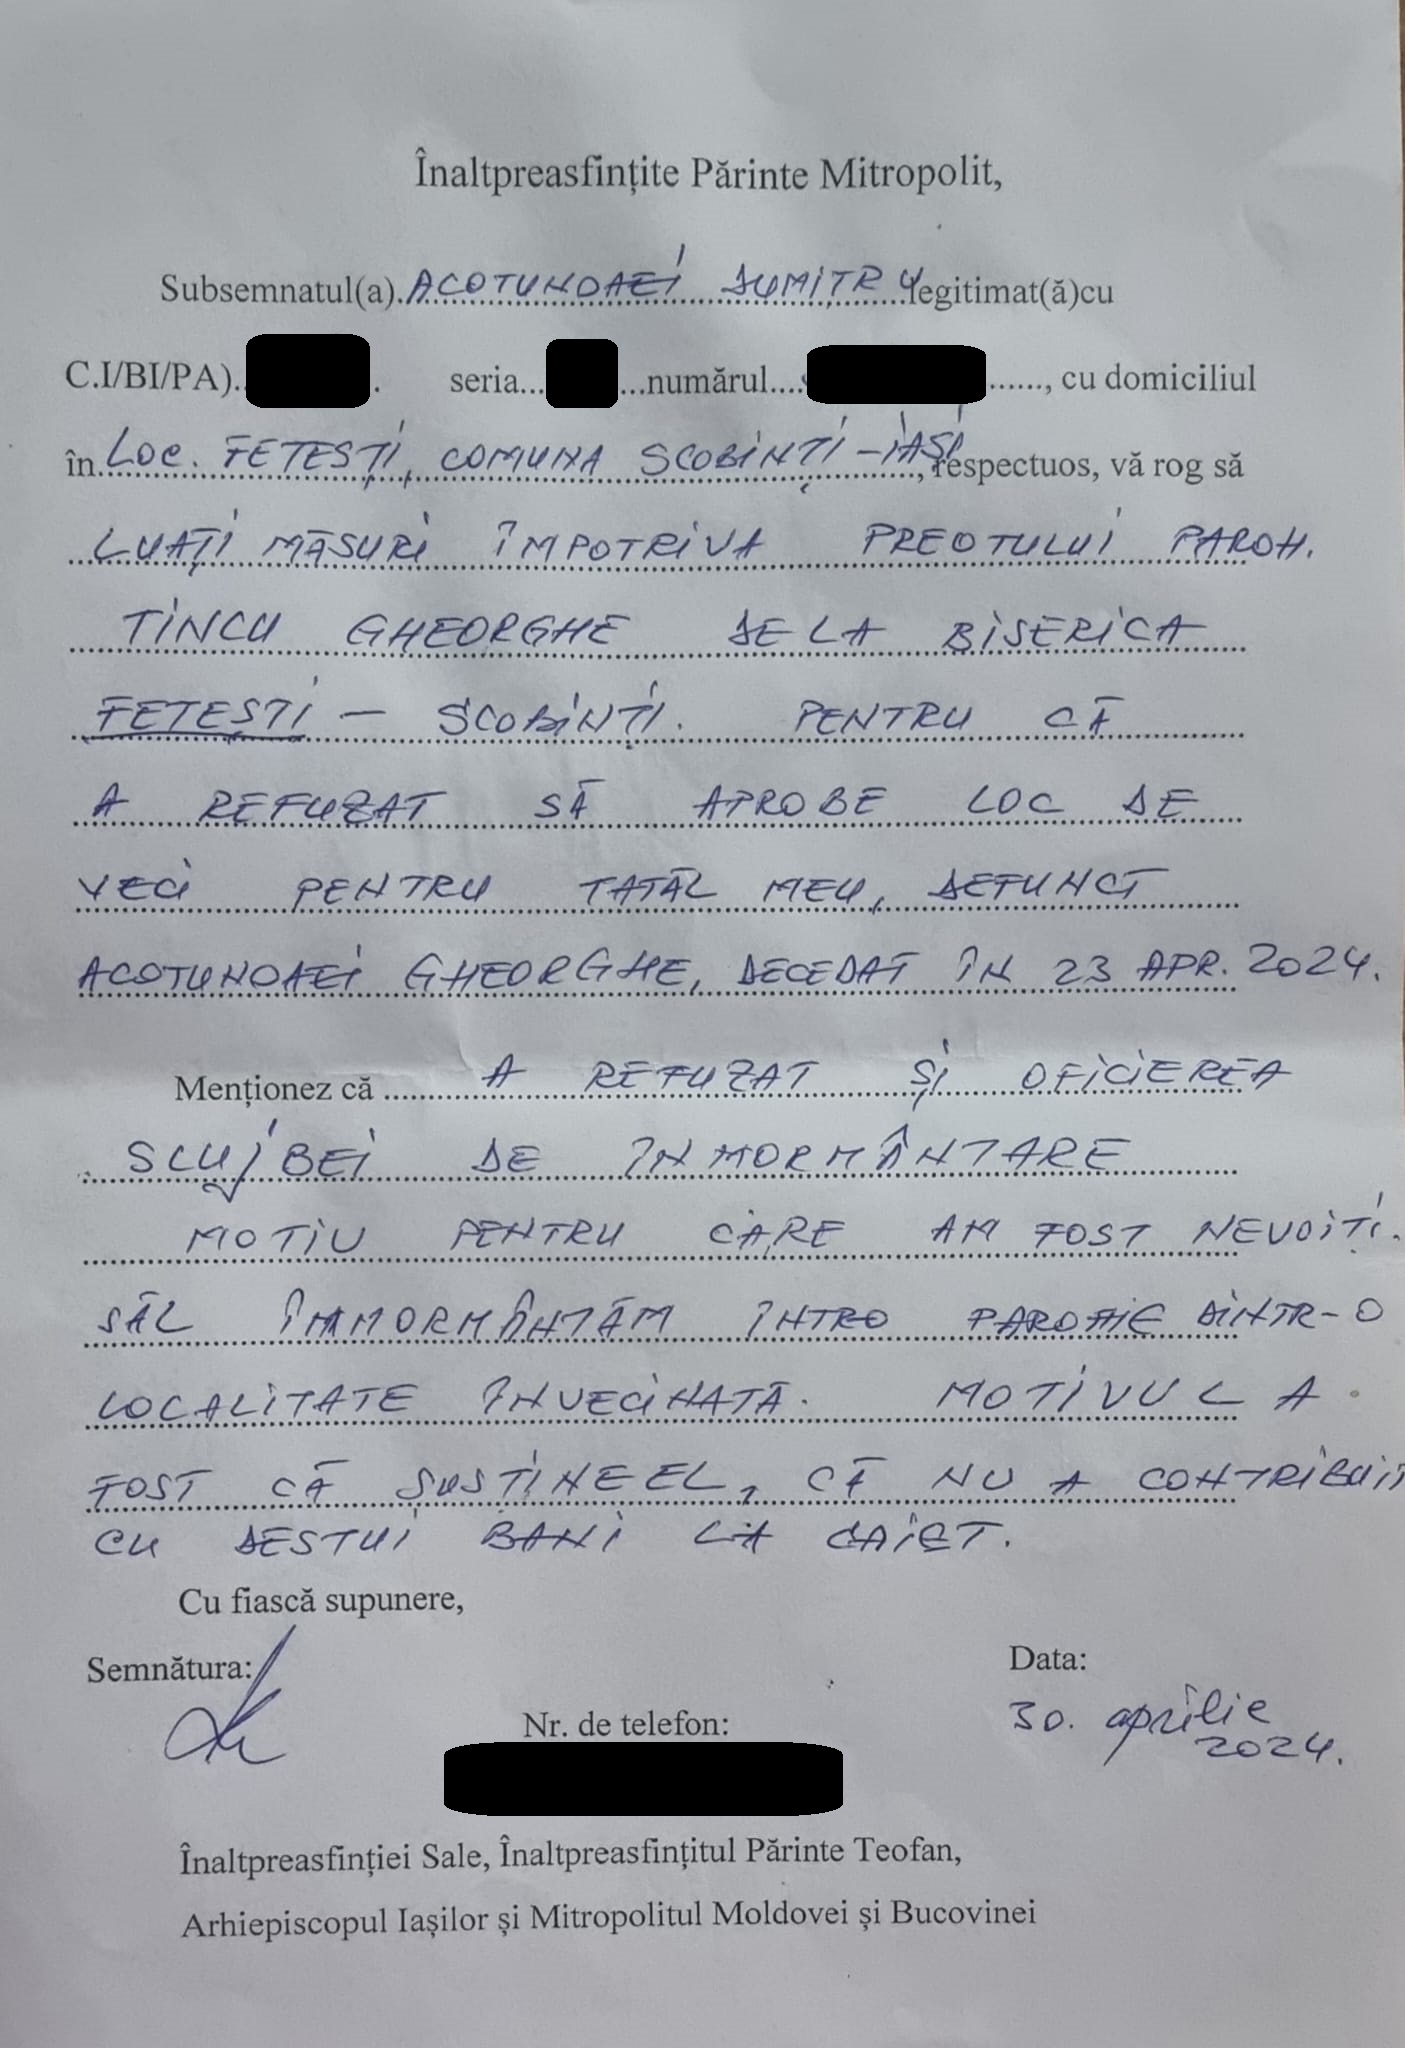 Înaltpreasfințite Părinte Mitropolit,
Subsemnatul(a). ACOTUNOAEI DUMITRU legitimat(ă)cu
C.I/BI/PA).. . seria... ...numărul.... ......, cu domiciliul
în. LOC. FETEȘTI, COMUNA SCOBINȚI – IAȘI, respectuos, vă rog să
LUAȚI MĂSURI ÎMPOTRIVA PREOTULUI PAROH.
TINCU GHEORGHE DE LA BISERICA
FETEȘTI – SCOBINȚI. PENTRU CĂ
A REFUZAT SĂ APROBE LOC DE
VECI PENTRU TATĂL MEU, DEFUNCT
ACOTUNOAEI GHEORGHE, DECEDAT ÎN 23 APR. 2024.
Menționez că ..... A REFUZAT ȘI OFICIEREA
SLUJBEI DE ÎNMORMÂNTARE
MOTIV PENTRU CARE AM FOST NEVOIȚI.
SĂL ÎNMORMÂNTĂM ÎNTRO PAROHIE DINTR-O
LOCALITATE ÎNVECINATĂ. MOTIVUL A
FOST CĂ SUSȚINE EL, CĂ NU A CONTRIBUIT
CU DESTUI BANI LA CAIET.
Cu fiască supunere,
Semnătura: Data:
Nr. de telefon: 30. aprilie
2024.
Înaltpreasfinției Sale, Înaltpreasfințitul Părinte Teofan,
Arhiepiscopul Iașilor și Mitropolitul Moldovei și Bucovinei